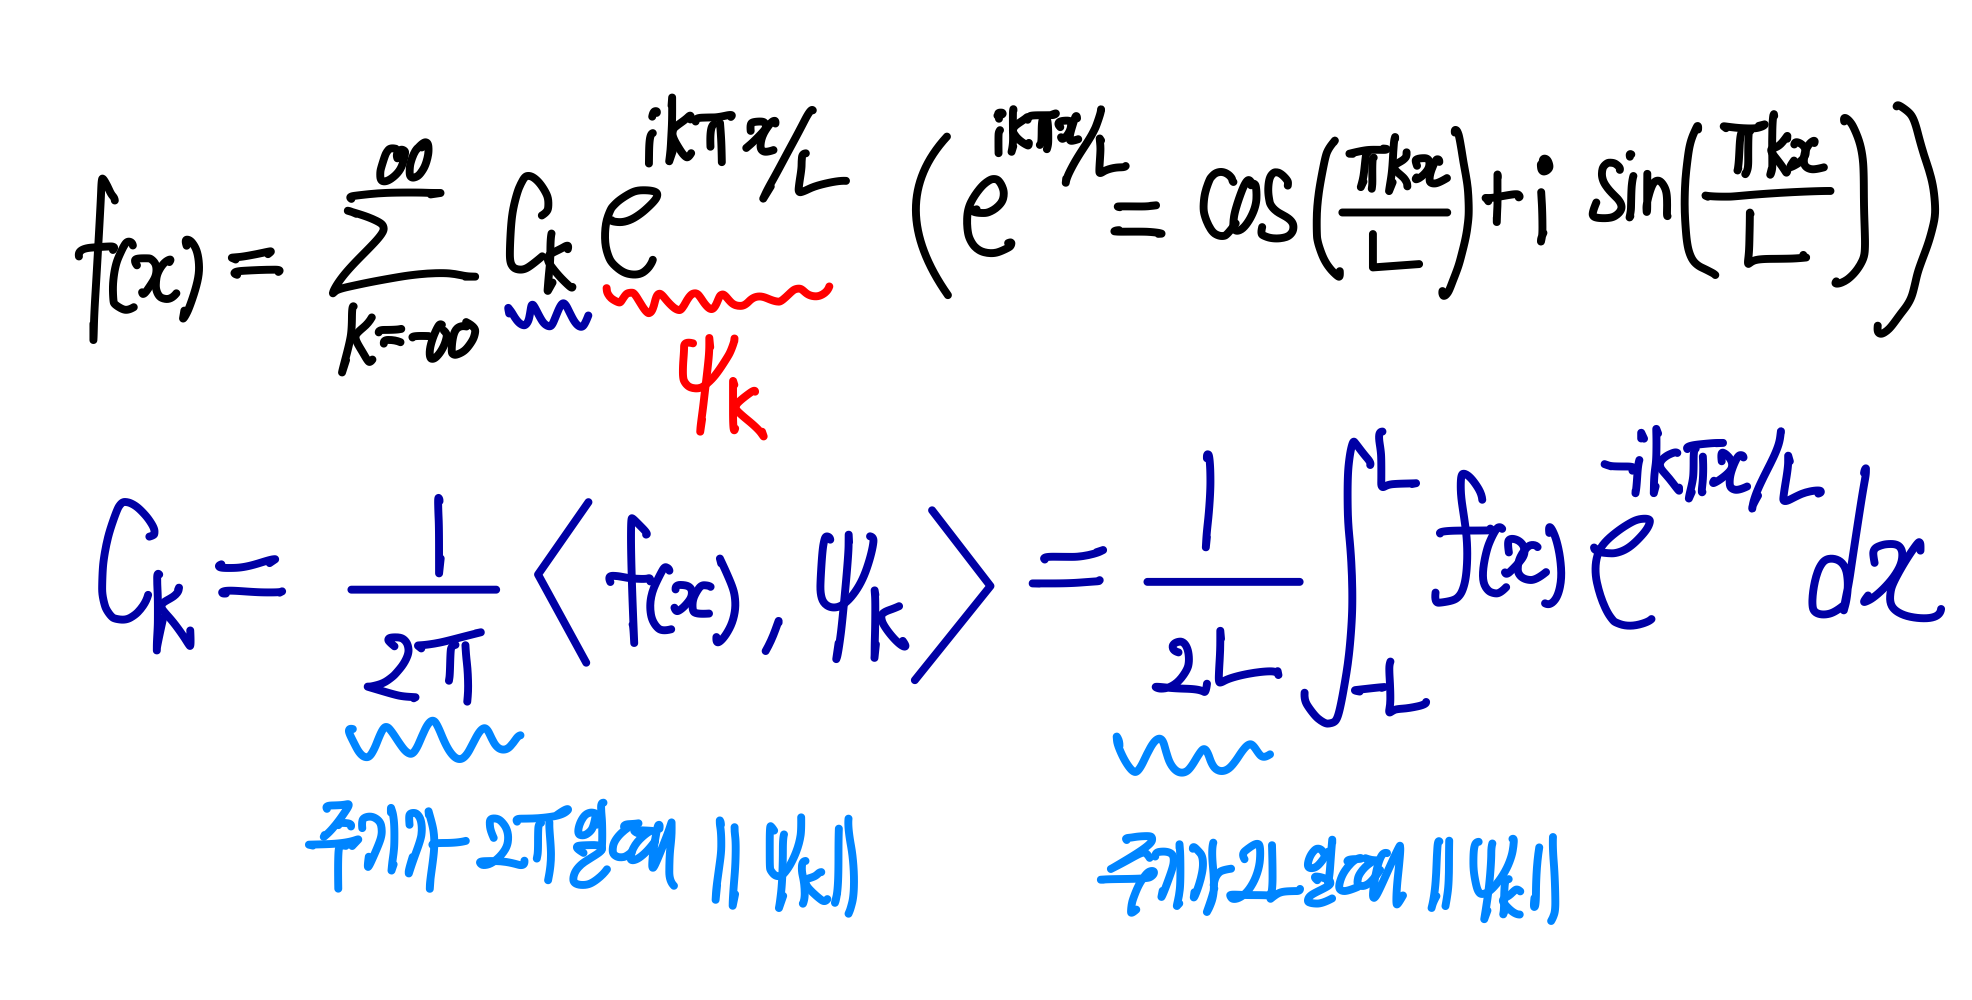 f(x) = ∑_{k=-∞}^{∞} C_k e^{ikπx/L} (e^{ikπx/L} = cos(πkx/L) + i sin(πkx/L))
ψ_k
C_k = 1/2π ⟨f(x), ψ_k⟩ = 1/2L ∫_{-L}^{L} f(x) e^{-ikπx/L} dx
주기가 2π일때 ||ψ_k|| 주기가 2L일때 ||ψ_k||